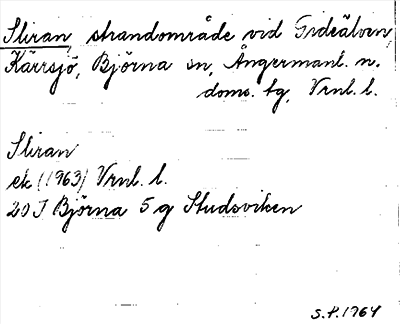 Sliran, strandområde vid Gideälven,
Kärrsjö, Björna sn, Ångermanl. n.
doms. tg, Vrnl. l.
Sliran
ek (1963) Vrnl. l.
20 I Björna 5 g Studsviken
S.P. 1964